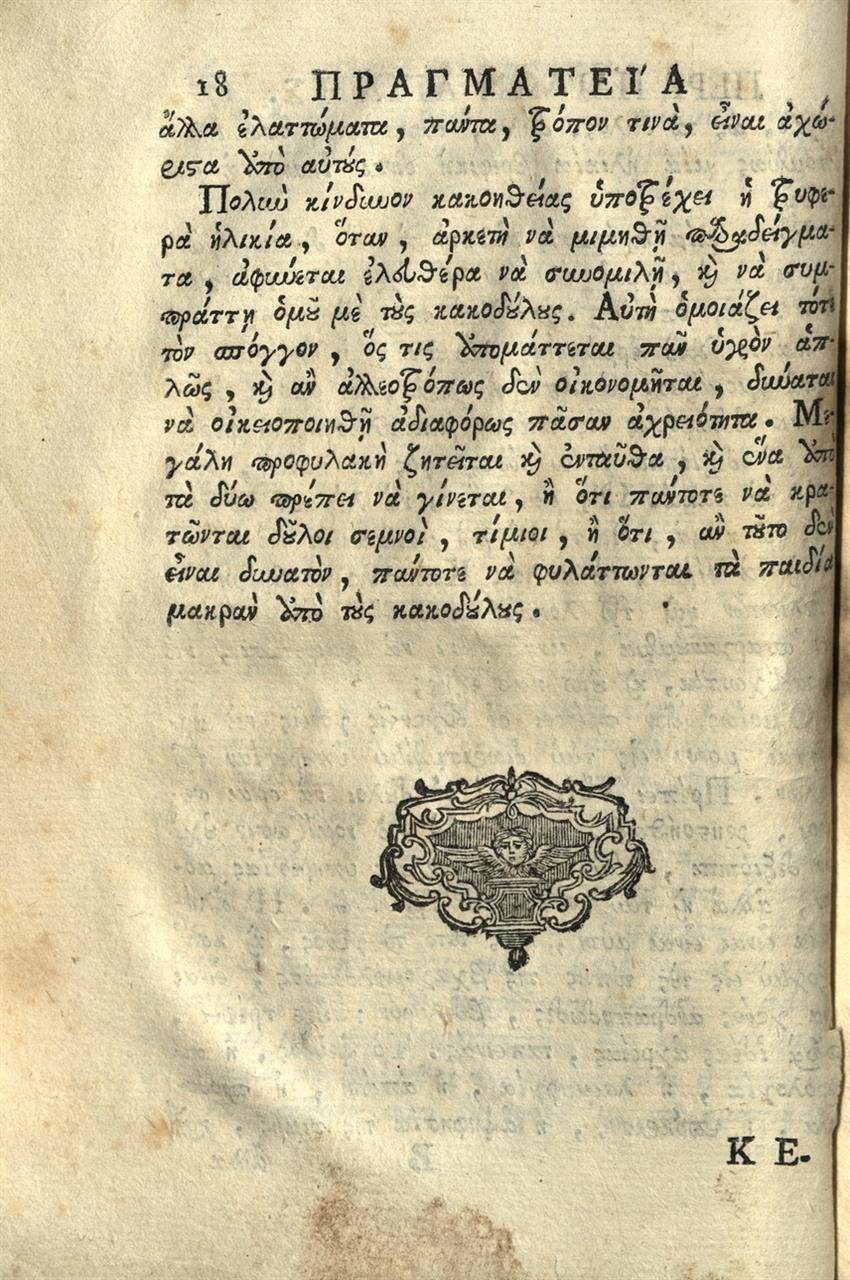 18 ΠΡΑΓΜΑΤΕΙ'Α
ἄλλα ἐλαττώματα, πάντα, τρόπον τινὰ, εἶναι ἀχώ-
ριστα ἀπὸ αὐτούς.
Πολὺν κίνδυνον κακοηθείας ὑποτρέχει ἡ τρυφε-
ρὰ ἡλικία, ὅταν, ἀρκετὴ νὰ μιμηθῇ παραδείγμα-
τα, ἀφίνεται ἐλευθέρα νὰ συνομιλῇ, καὶ νὰ συμ-
πράττῃ ὁμοῦ μὲ τοὺς κακοδούλους. Αὐτὴ ὁμοιάζει τότε
τὸν σπόγγον, ὅς τις ἀπομάττεται πᾶν ὑγρὸν ἁπ-
λῶς, καὶ ἂν ἀλλεοτρόπως δὲν οἰκονομῆται, δύναται
νὰ οἰκειοποιηθῇ ἀδιαφόρως πᾶσαν ἀχρειότητα. Με-
γάλη προφυλακὴ ζητεῖται καὶ ἐνταῦθα, καὶ ἕνα ἀπὸ
τὰ δύω πρέπει νὰ γίνεται, ἢ ὅτι πάντοτε νὰ κρα-
τῶνται δοῦλοι σεμνοὶ, τίμιοι, ἢ ὅτι, ἂν τοῦτο δὲν
εἶναι δυνατὸν, πάντοτε νὰ φυλάττωνται τὰ παιδία
μακρὰν ἀπὸ τοὺς κακοδούλους.
Κ Ε-